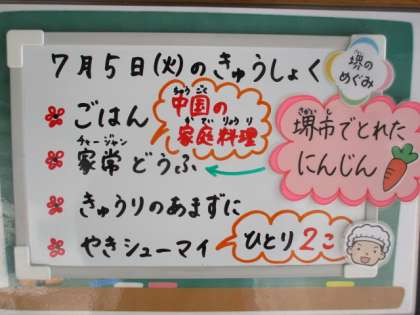 7月5日(火)のきゅうしょく
堺の
めぐみ
ごはん
ちゅうごく
中国の
かていりょうり
家庭料理
チャージャン
家常どうふ
さかいし
堺市でとれた
にんじん
きゅうりのあまずに
やきシューマイ
ひとり2こ